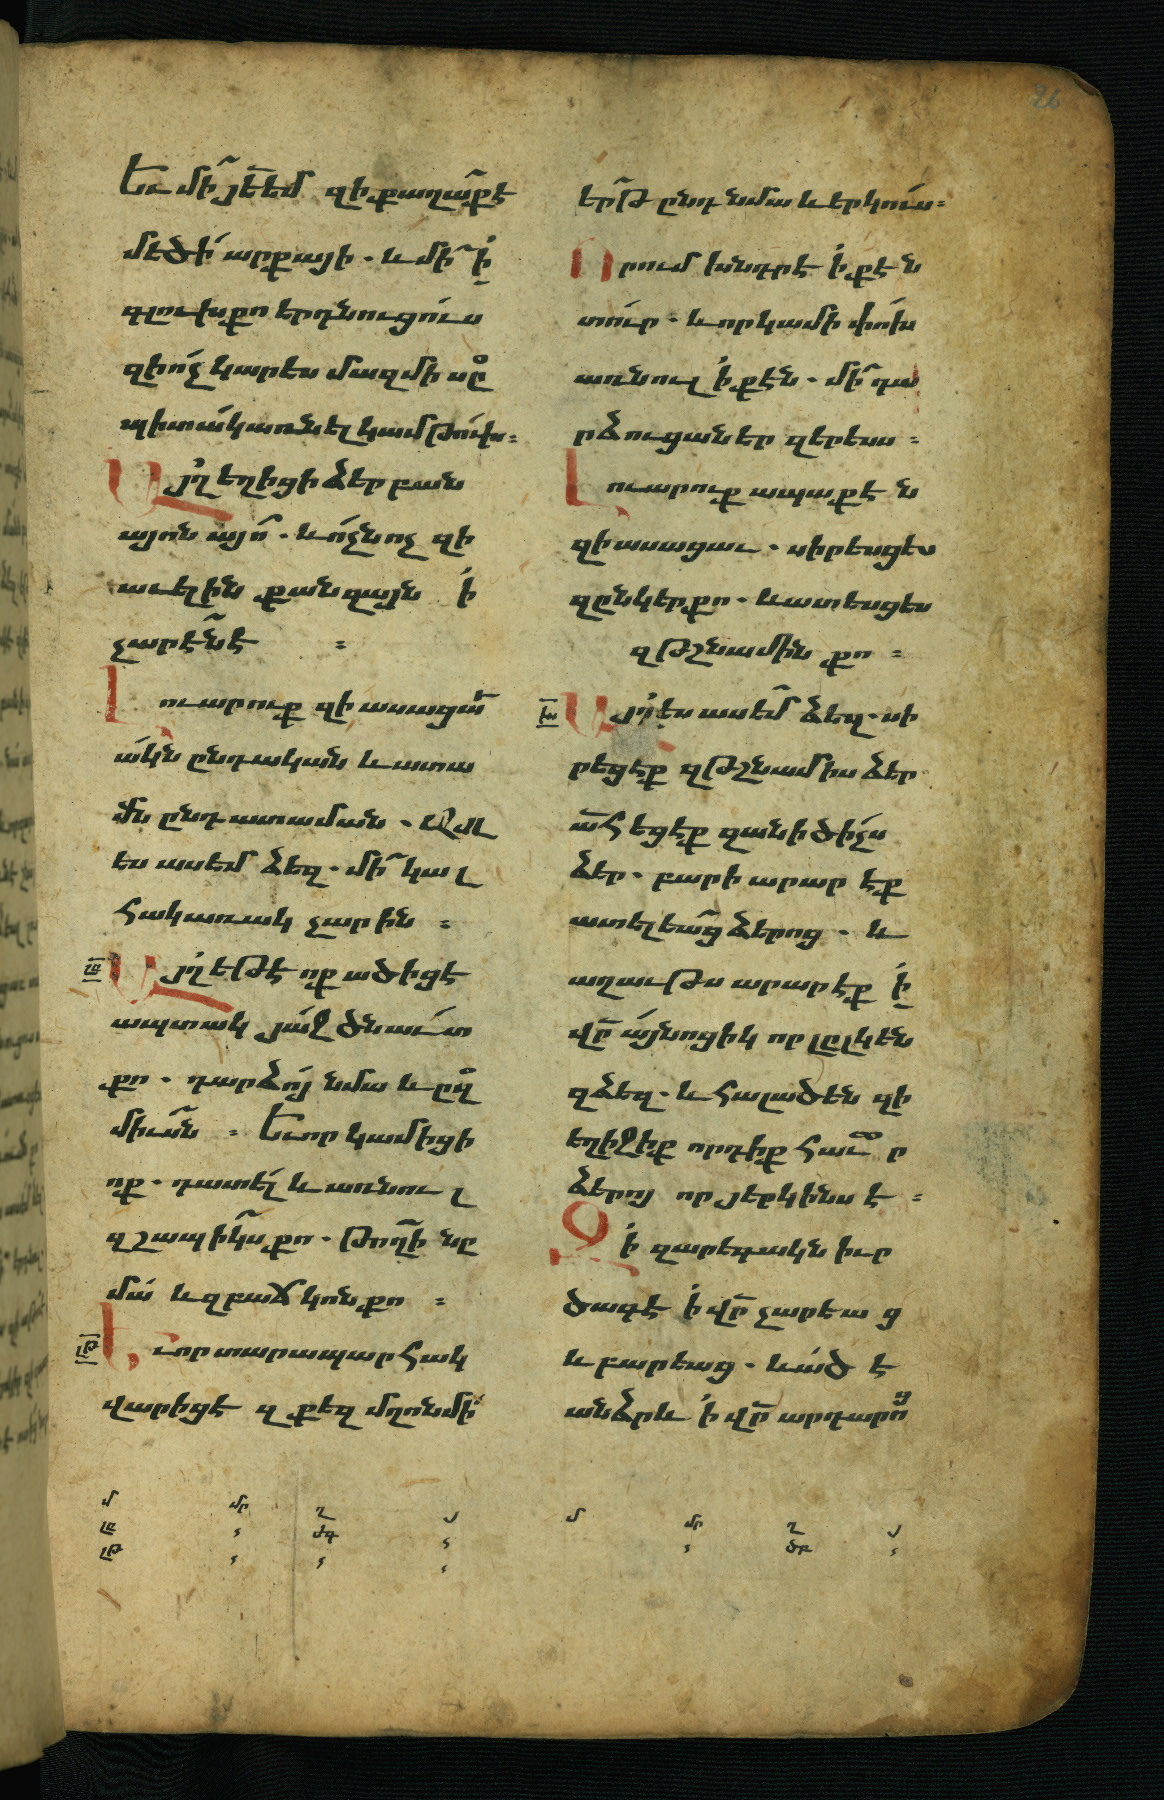 26
Եւ մի՛ յեէմ զի քաղաքէ
մեծի արքայի. և մի՛ ի
գլուխ քո երդնուցուս
զի ոչ կարես մազ մի սը
պիտակ առնել կամ թուխ։
Այղ եղիցի ձեր բան
այոն այո. և ոչն ոչ զի
աւելին քան զայն ի
չարէնէ ։
Լուարուք զի ասացաւ
ակն ընդ ական և ատա
մն ընդ ատաման. Այլ
ես ասեմ ձեզ. մի՛ կալ
հակառակ չարին ։
լզ Այղ եթէ ոք ածիցէ
ապտակ յաջ ծնաւտ
քո. դարձոյ նմա և ըզ
միւսն ։ Եւ որ կամիցի
ոք. դատել և առնուլ
զշապիկս քո. թողի նը
մա և զբաճկոն քո ։
լթ Եւ որ տարապար հակ
վարիցէ զքեզ մղոն մի
երթ ընդ նմա և երկուս։
Որում խնդրէ ի քէն
տուր. և որ կամի փոխ
առնուլ ի քէն. մի՛ դա
րձուցաներ զերեսս ։
Լուարուք ապաքէն
զի ասացաւ. սիրեսցես
զընկեր քո. և ատեսցես
զթշնամին քո ։
խ Այղ ես ասեմ ձեզ. սի
րեցէք զթշնամիս ձեր
աւհեցէք զանիծիչս
ձեր. բարի արարէք
ատելեաց ձերոց. և
աղաւթս արարէք ի
վր այնոցիկ որ լըլկեն
զձեզ. և հալածեն զի
եղիջիք որդիք հաւր
ձերոյ որ յերկինս է ։
Զի զարեգակն իւր
ծագէ ի վր չարեաց
և բարեաց. և ած է
անձրև ի վր արդարոց
մ մր ղ յ
լզ ՛ ժգ ՛
լթ ՛ ՛ ՛
մ մր ղ յ
՛ ծբ ՛